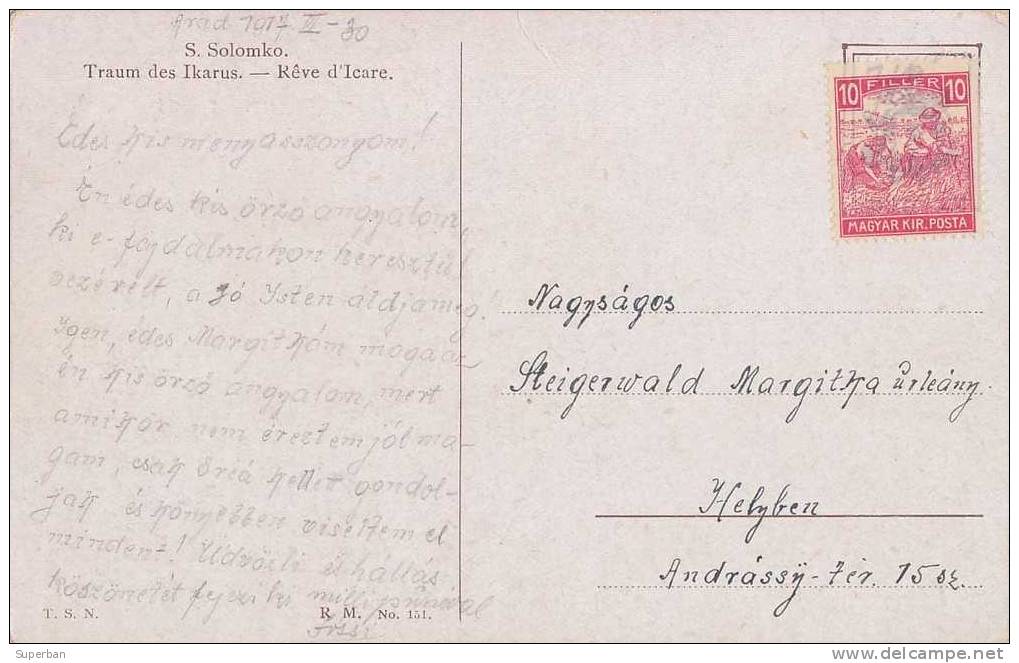 Arad 1917 II - 30
S. Solomko.
Traum des Ikarus. — Rêve d'Icare.
Édes kis menyasszonyom!
Én édes kis örzö angyalom,
ki e-fajdalmakon keresztül
vezérelt, a Jó Isten áldja meg!
Igen, édes Margitkám maga az
én kis örzö angyalom, mert
amikor nem éreztem jól ma-
gam, csak kellet gondol-
jak és könyebben viseltem el
minden-! Üdvözli
köszönetét fejezi ki
T. S. N.
R. M. No. 151.
10 FILLÉR 10
MAGYAR KIR. POSTA
Nagyságos
Steigerwald Margitka úrleány.
Helyben
Andrássy-tér. 15 sz
Superban
delcampe.net